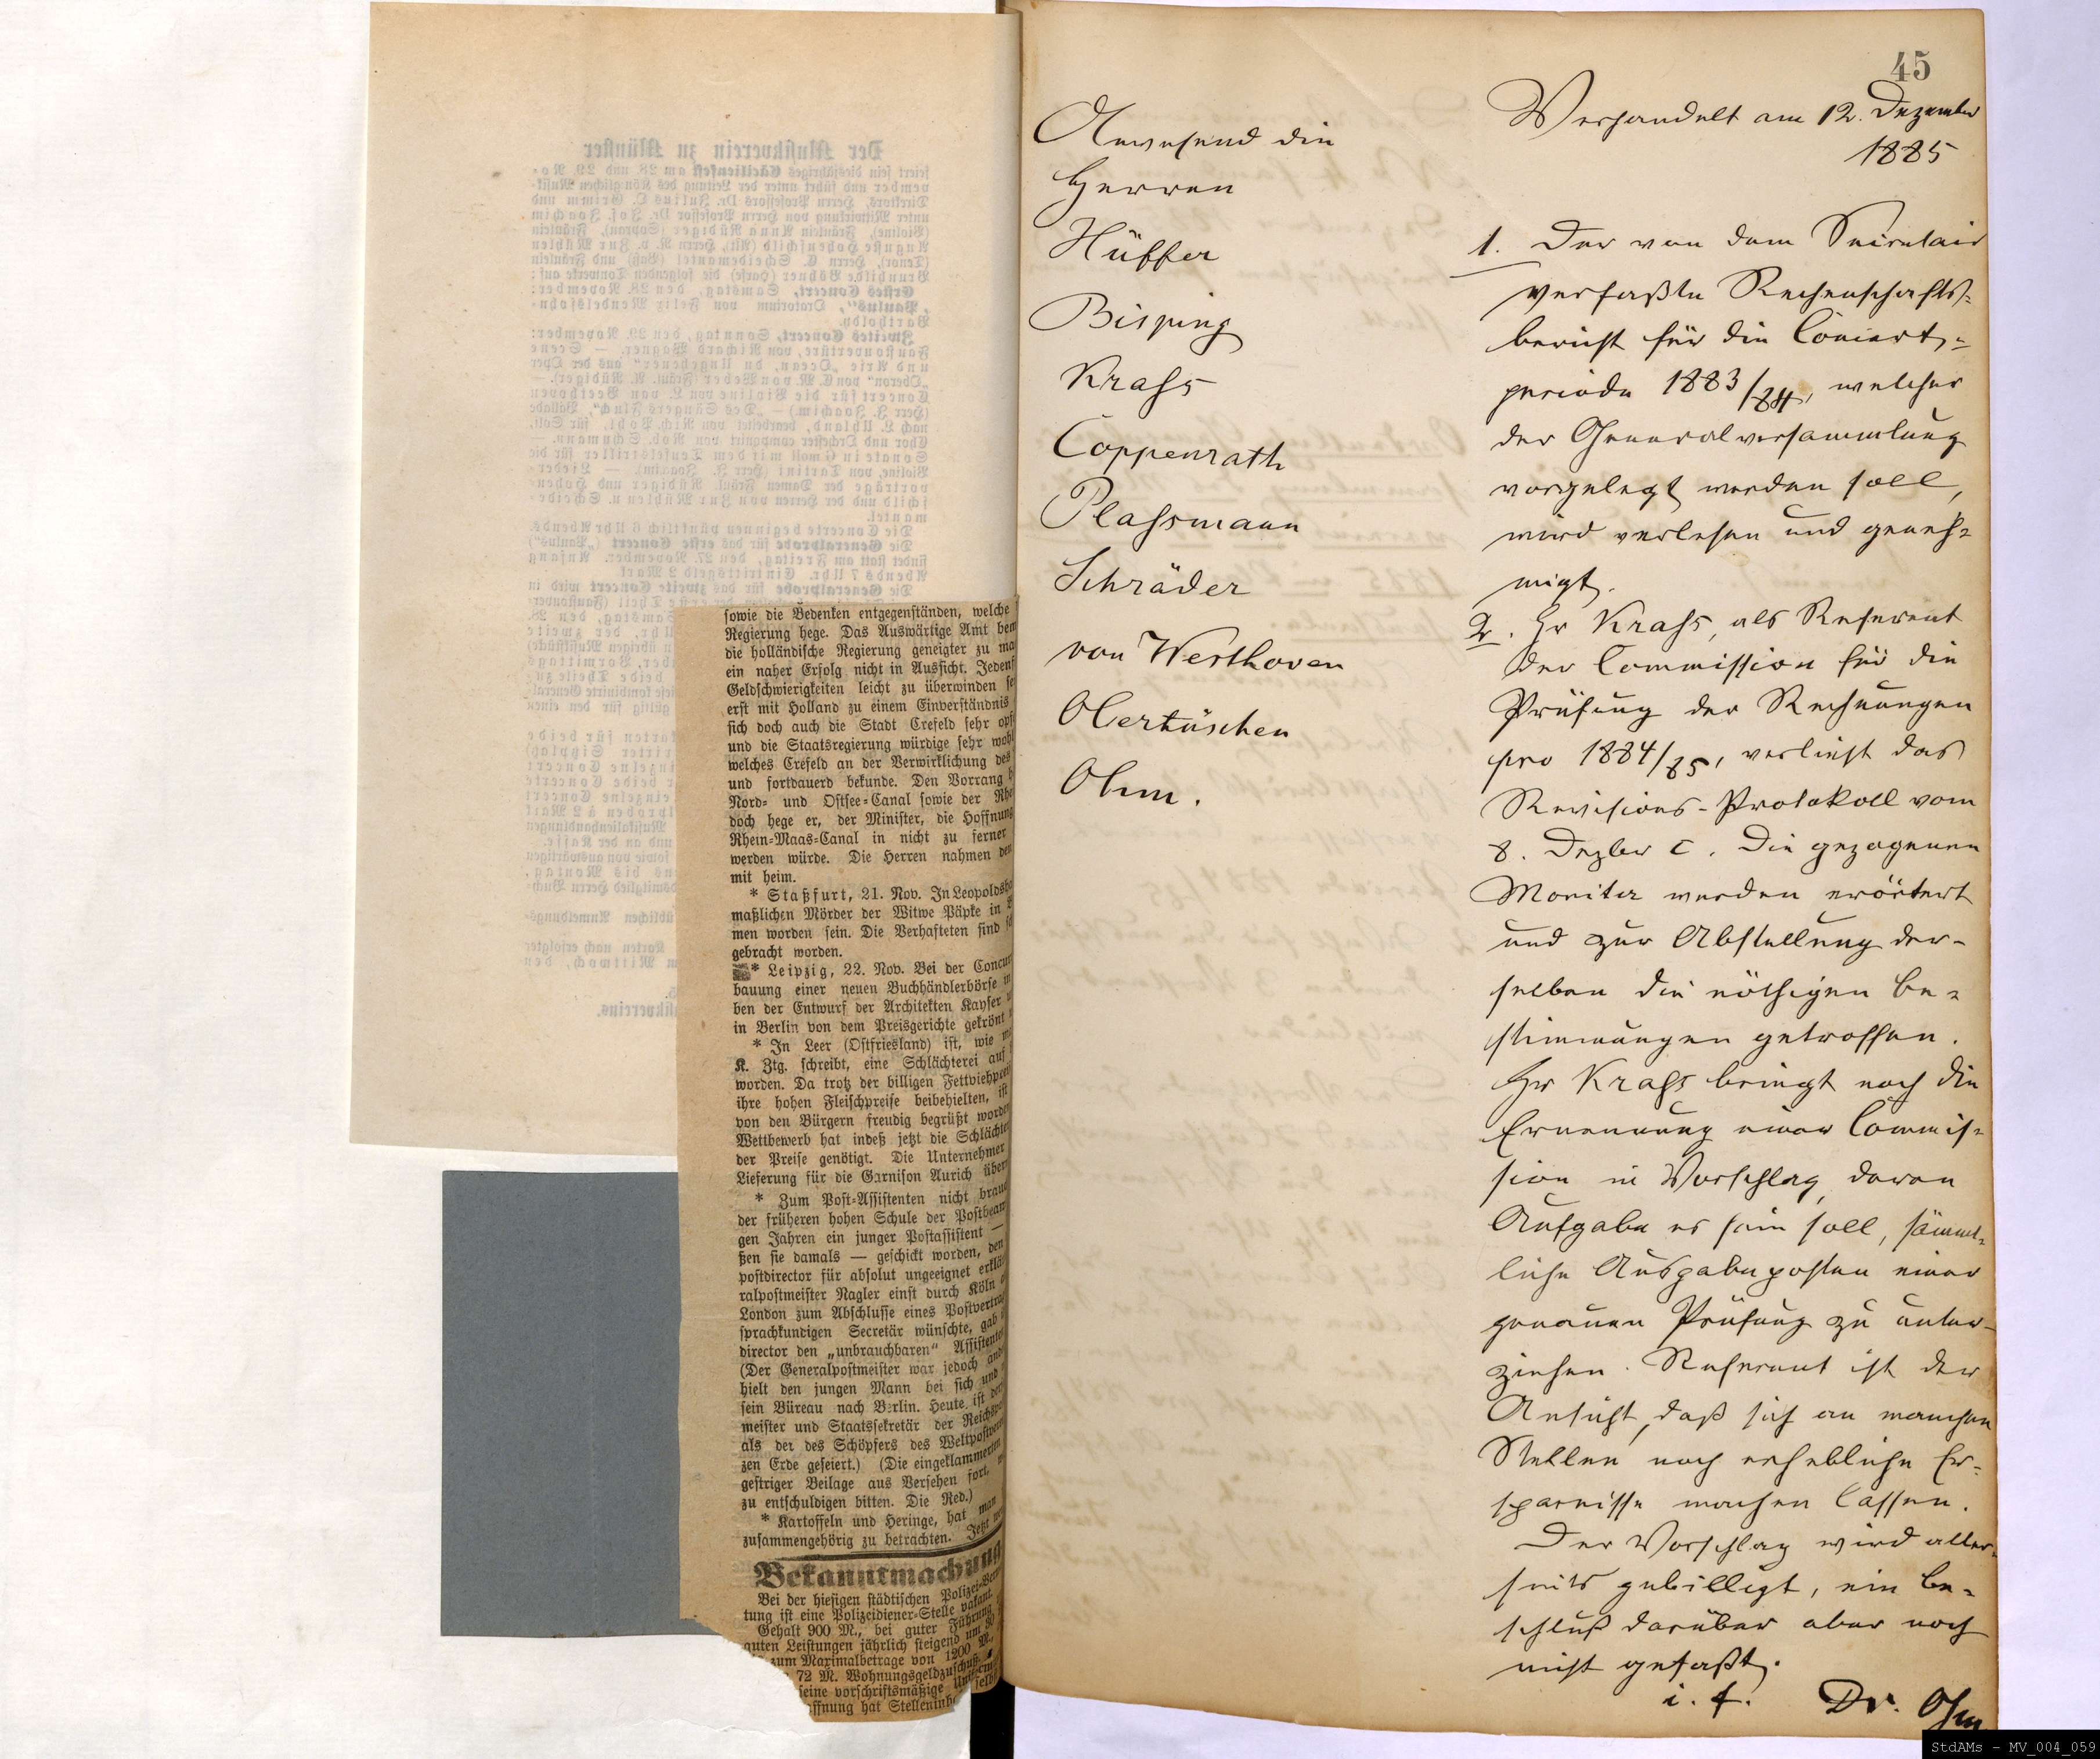 Der Musikverein zu Münster
feiert sein diesjähriges Cäcilienfest am 28. und 29. No-
vember und führt unter der Leitung des Königlichen Musik-
Direktors, Herrn Professors Dr. Julius O. Grimm und
unter Mitwirkung von Herrn Professor Dr. Jos. Joachim
(Violine), Fräulein Anna Rüdiger (Sopran), Fräulein
Auguste Hohenschild (Alt), Herrn R. v. Zur Mühlen
(Tenor), Herrn E. Schiedemantel (Baß) und Fräulein
die folgenden Concerte auf:
Erstes Concert, Samstag, den 28. November:
„Paulus“, Oratorium von Felix Mendelssohn-
Bartholdy.
Zweites Concert, Sonntag, den 29. November:
Faustouvertüre, von Richard Wagner. — Scene
und Arie „Ocean, du Ungeheuer“ aus der Oper
„Oberon“ von C. M. von Weber (Fräul. A. Rüdiger). —
Concert für die Violine von L. von Beethoven
(Herr J. Joachim) — „Des Sängers Fluch“, Ballade
nach L. Uhland, bearbeitet von Rich. Pohl, für Soli,
Chor und Orchester componirt von Rob. Schumann. —
Sonate in G moll mit dem Teufelstriller für die
Violine, von Tartini (Herr J. Joachim). — Lieder-
vorträge der Damen Fräul. Rüdiger und Hohen-
schild und der Herren von Zur Mühlen u. Schiede-
mantel.
Die Concerte beginnen pünktlich 6 Uhr Abends.
Die Generalprobe für das erste Concert („Paulus“)
findet statt am Freitag, den 27. November. Anfang
Abends 7 Uhr. Eintrittsgeld 2 Mark.
Die Generalprobe für das zweite Concert wird in
sowie die Bedenken entgegenständen, welche
Regierung hege. Das Auswärtige Amt bem
die holländische Regierung geneigter zu ma
ein naher Erfolg nicht in Aussicht. Jedenf
Geldschwierigkeiten leicht zu überwinden se
erst mit Holland zu einem Einverständnis
sich doch auch die Stadt Crefeld sehr opf
und die Staatsregierung würdige sehr wohl
welches Crefeld an der Verwirklichung des
und fortdauerd bekunde. Den Vorrang h
Nord- und Ostsee-Canal sowie der Rhe
doch hege er, der Minister, die Hoffnung
Rhein-Maas-Canal in nicht zu ferner
werden würde. Die Herren nahmen den
mit heim.
* Staßfurt, 21. Nov. In Leopoldsha
maßlichen Mörder der Witwe Päpke in
men worden sein. Die Verhafteten sind
gebracht worden.
* Leipzig, 22. Nov. Bei der Concur
bauung einer neuen Buchhändlerbörse in
ben der Entwurf der Architekten Kayser
in Berlin von dem Preisgerichte gekrönt
* In Leer (Ostfriesland) ist, wie
K. Ztg. schreibt, eine Schlächterei auf
worden. Da trotz der billigen Fettviehprei
ihre hohen Fleischpreise beibehielten, ist
von den Bürgern freudig begrüßt worden
Wettbewerb hat indeß jetzt die Schlächte
der Preise genötigt. Die Unternehmer
Lieferung für die Garnison Aurich über
* Zum Post-Assistenten nicht brauc
der früheren hohen Schule der Postbeam
gen Jahren ein junger Postassistent —
ßen sie damals — geschickt worden, den
postdirector für absolut ungeeignet erklär
ralpostmeister Nagler einst durch Köln
London zum Abschlusse eines Postvertrag
sprachkundigen Secretär wünschte, gab
director den „unbrauchbaren“ Assistenten
(Der Generalpostmeister war jedoch ande
hielt den jungen Mann bei sich und
sein Büreau nach Berlin. Heute ist der
meister und Staatssekretär der Reichspo
als der des Schöpfers des Weltpostverei
zen Erde gefeiert.) (Die eingeklammerten
gestriger Beilage aus Versehen fort,
zu entschuldigen bitten. Die Red.)
* Kartoffeln und Heringe, hat man
zusammengehörig zu betrachten. Jetzt
Bekanntmachung
Bei der hiesigen städtischen Polizei-Verw
tung ist eine Polizeidiener-Stelle vakant.
Gehalt 900 M., bei guter Führung
guten Leistungen jährlich steigend um
zum Maximalbetrage von 1200 M.,
72 M. Wohnungsgeldzuschuß
seine vorschriftsmäßige
ffnung hat Stelleninh
45
Anwesend die
Herren
Hüffer
Bisping
Krass
Coppenrath
Plassmann
Schräder
von Westhoven
Obertüschen
Ohm.
Verhandelt am 12. Dezember
1885
1. Der von dem Secretair
verfaßte Rechenschafts-
bericht für die Concert-
periode 1883/84, welcher
der Generalversammlung
vorgelegt werden soll,
wird verlesen und geneh-
migt.
2. Hr Krass, als Referent
der Commission für die
Prüfung der Rechnungen
pro 1884/85, verliest das
Revisions-Protokoll vom
8. Dezber c. Die gezogenen
Monita werden erörtert
und zur Abstellung der-
selben die nöthigen Be-
stimmungen getroffen.
Hr Krass bringt noch die
Ernennung einer Commis-
sion in Vorschlag, deren
Aufgabe es sein soll, sämmt-
liche Ausgabeposten einer
genauen Prüfung zu unter-
ziehen. Referent ist der
Ansicht, daß sich an manchen
Stellen noch erhebliche Er-
sparnisse machen lassen.
Der Vorschlag wird aller-
seits gebilligt, ein Be-
schluß darüber aber noch
nicht gefaßt.
i. f. Dr. Ohm
StdAMs - MV_004_059